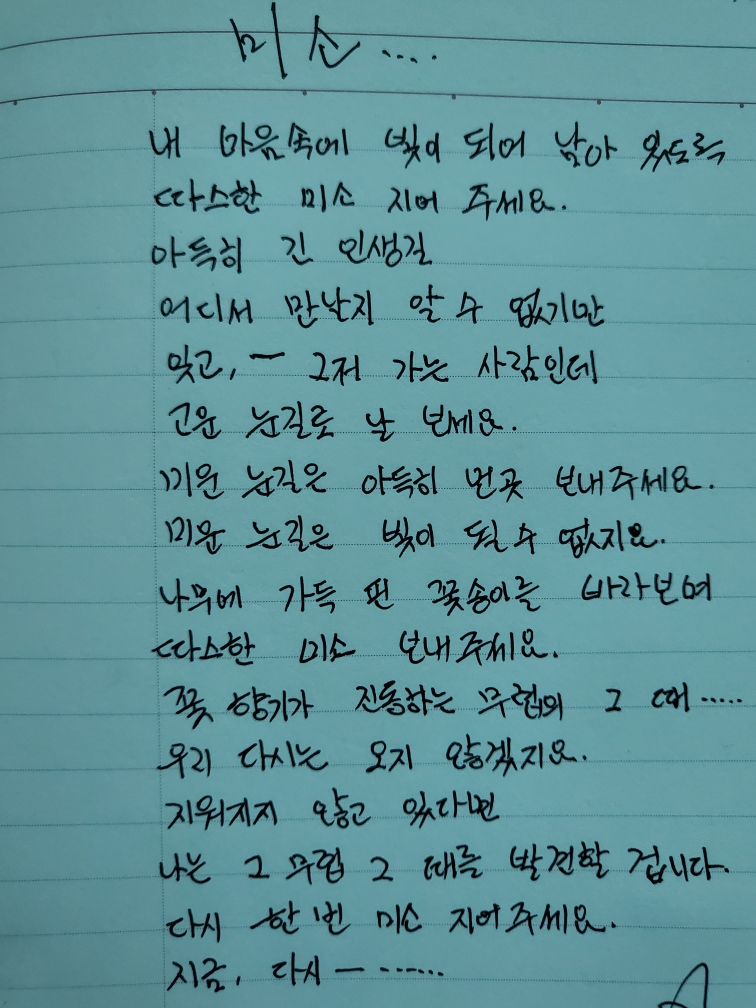 미소....
내 마음속에 빛이 되어 남아 있도록
따스한 미소 지어 주세요.
아득히 긴 인생길
어디서 만난지 알 수 없기만
잊고, ー 그저 가는 사람인데
고운 눈길로 날 보세요.
미운 눈길은 아득히 먼곳 보내주세요.
미운 눈길은 빛이 될 수 없지요.
나무에 가득 핀 꽃송이를 바라보며
따스한 미소 보내주세요.
꽃 향기가 진동하는 무렵의 그 때.....
우리 다시는 오지 않겠지요.
지워지지 않고 있다면
나는 그 무렵 그 때를 발견할 겁니다.
다시 한 번 미소 지어주세요.
지금, 다시ー ......